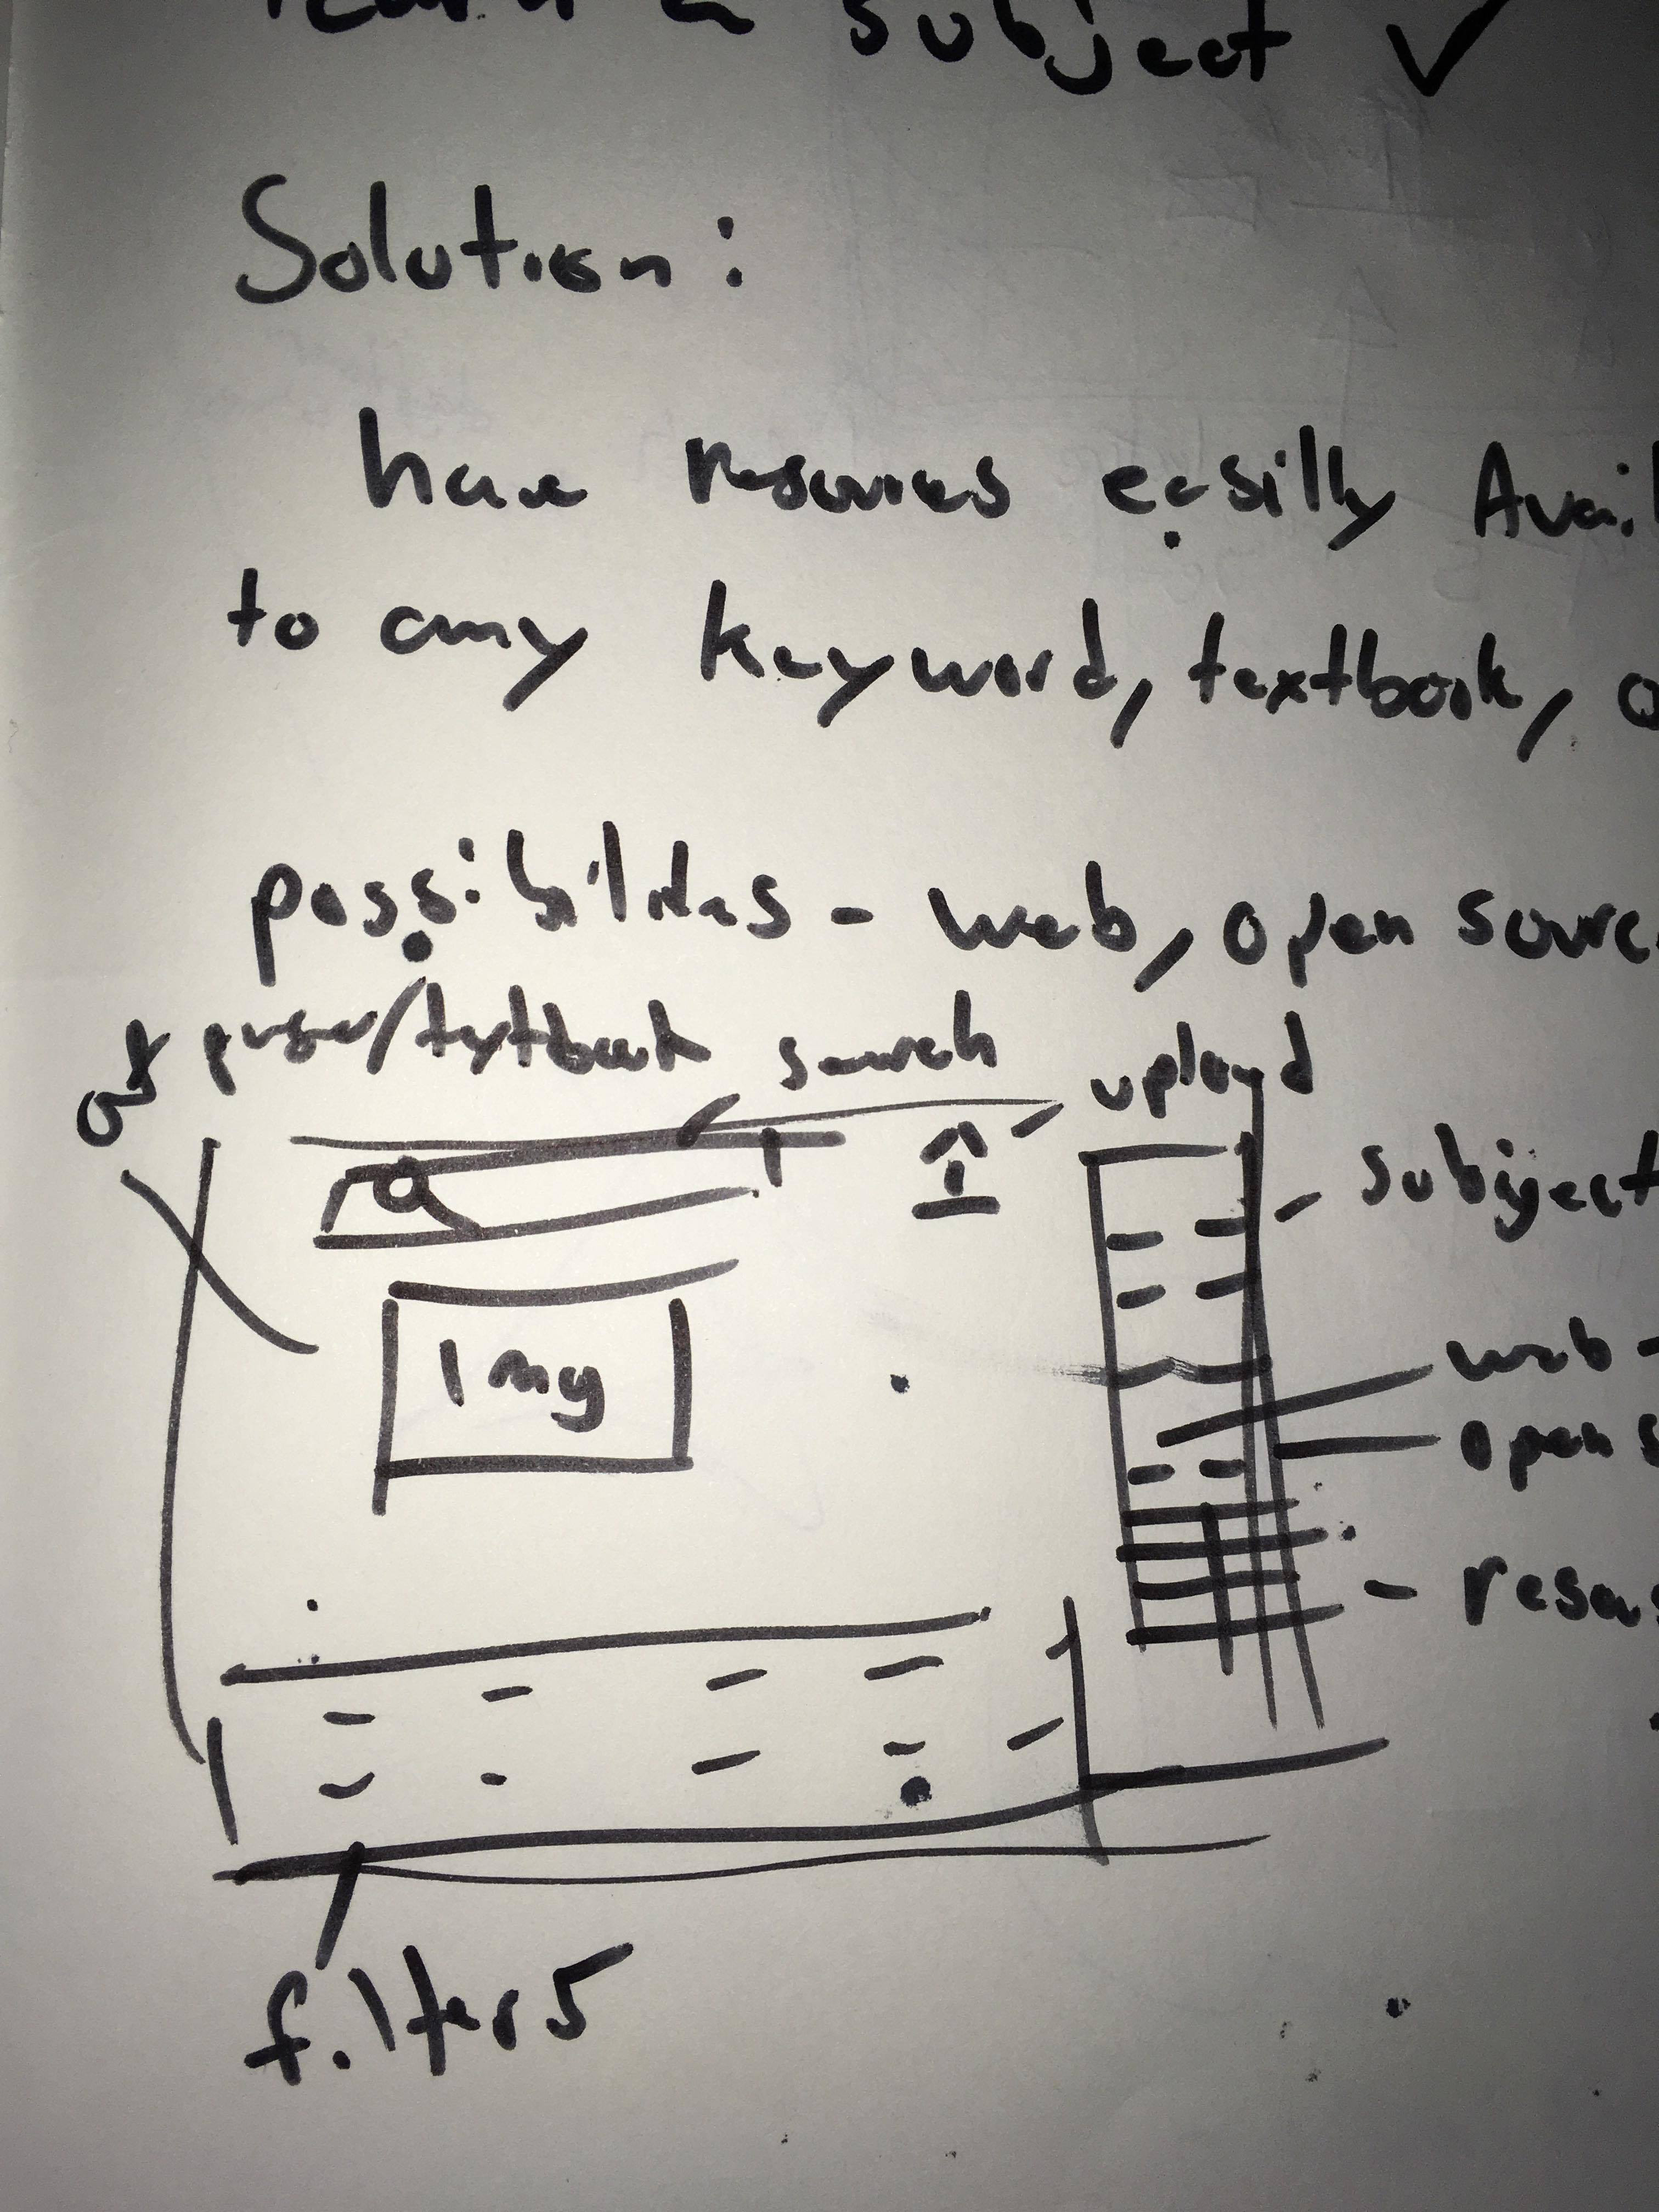 learn a subject ✓
Solution:
have resources easilly Avail
to any keyword, textbook, o
possibilites - web, open source
/textbook search upload
subject
Img
web -
open s
resou
filters